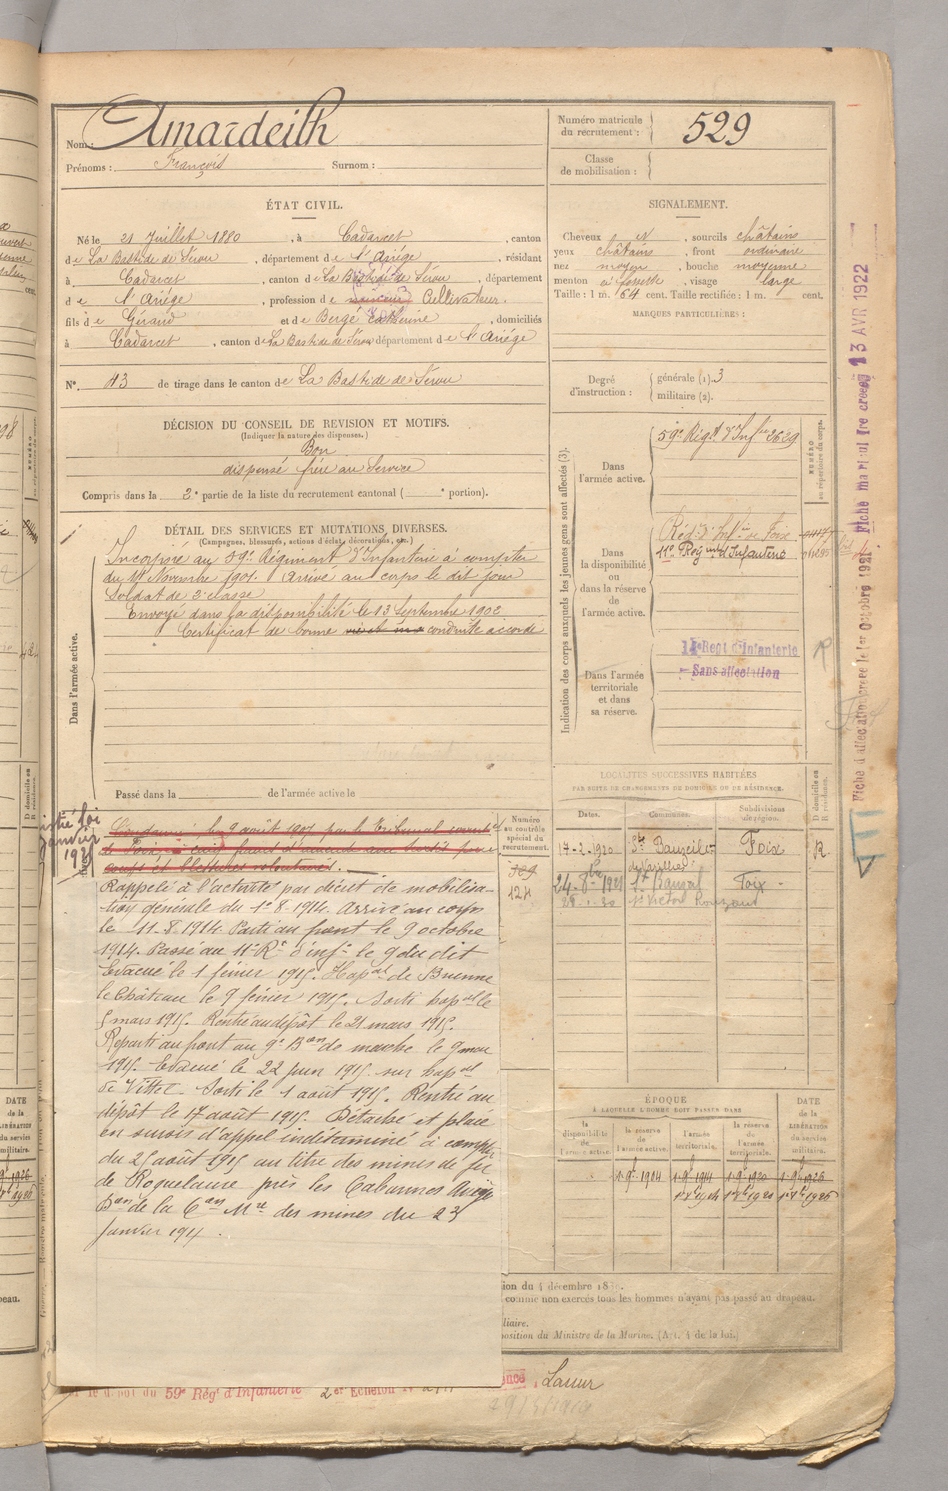 Nom : Amardeilh
Prénoms : François Surnom :
Numéro matricule du recrutement : 529
Classe de mobilisation :
ÉTAT CIVIL.
Né le 21 Juillet 1880, à Cadarcet, canton
de La Bastide de Sérou, département de l'Ariège, résidant
à Cadarcet, canton de La Bastide de Sérou, département
de l'Ariège, profession de Cultivateur.
fils de Géraud et de Bergé Catherine, domiciliés
à Cadarcet, canton de La Bastide de Sérou département de l'Ariège
N° 43 de tirage dans le canton de La Bastide de Sérou
SIGNALEMENT.
Cheveux N, sourcils châtains
yeux châtains, front ordinaire
nez moyen, bouche moyenne
menton à fossette, visage large
Taille : 1 m. 64 cent. Taille rectifiée : 1 m. cent.
MARQUES PARTICULIÈRES :
Degré d'instruction : générale (1). 3
militaire (2).
DÉCISION DU CONSEIL DE REVISION ET MOTIFS.
(Indiquer la nature des dispenses.)
Bon
dispensé frère au Service
Compris dans la 2e partie de la liste du recrutement cantonal ( e portion).
DÉTAIL DES SERVICES ET MUTATIONS DIVERSES.
(Campagnes, blessures, actions d'éclat, décorations, etc.)
Dans l'armée active.
Incorporé au 59e Régiment d'Infanterie à compter
du 14 Novembre 1901. Arrivé au corps le dit jour
Soldat de 2e classe
Envoyé dans la disponibilité le 13 Septembre 1902
Certificat de bonne conduite accordé
Passé dans la de l'armée active le
Condamné le 9 août 1907 par le Tribunal correctionel
de Foix à cinq francs d'amende
coups et blessures volontaires.
Rappelé à l'activité par décret de mobilisa-
tion générale du 1er 8-1914. Arrivé au corps
le 11-8-1914 Parti au front le 9 octobre
1914. Passé au 11e Rt d'infie le 9 du dit
Evacué le 1 février 1915. Hopal de Brienne
le Château le 9 février 1915. Sorti hopal le
5 mars 1915. Rentré au dépôt le 21 mars 1915.
Reparti au front au 9e Bon de marche le 9 mai
1915. Evacué le 22 juin 1915 sur hopal
de Vittel. Sorti le 1 août 1915. Rentré au
dépôt le 17 août 1915. Détaché et placé
en sursis d'appel indéterminé à compter
du 25 août 1915 au titre des mines de fer
de Roquelaure près les Cabannes Ariège
Don de la Con Mre des mines du 23
janvier 1917.
Indication des corps auxquels les jeunes gens sont affectés (3).
NUMÉRO au répertoire du corps.
Dans l'armée active.
59e Régt d'Infie 2629
Dans la disponibilité ou dans la réserve de l'armée active.
Régt d'Infie de Foix
11e Regiment d'Infanterie
Dans l'armée territoriale et dans sa réserve.
Regt d'Infanterie
Sans affectation
LOCALITÉS SUCCESSIVES HABITÉES
PAR SUITE DE CHANGEMENTS DE DOMICILE OU DE RÉSIDENCE.
Dates. Communes. Subdivisions de région. D domicile ou R résidence.
17-2-1920 St Bauzeil Foix R
de Varilhes
24-8bre 1921 St Bauzel Foix -
Numéro au contrôle spécial du recrutement.
124
ÉPOQUE
À LAQUELLE L'HOMME DOIT PASSER DANS
la disponibilité de l'armée active. la réserve de l'armée active. l'armée territoriale. la réserve de l'armée territoriale. DATE de la LIBÉRATION du service militaire.
1-9bre 1904 1-9bre 1914 1-9bre 1920 1-9bre 1926
ition du 4 décembre
comme non exercés tous les hommes n'ayant pas passé au drapeau.
liaire.
position du Ministre de la Marine. (Art. 4 de la loi.)
59e Régt d'Infanterie
13 AVR 1922